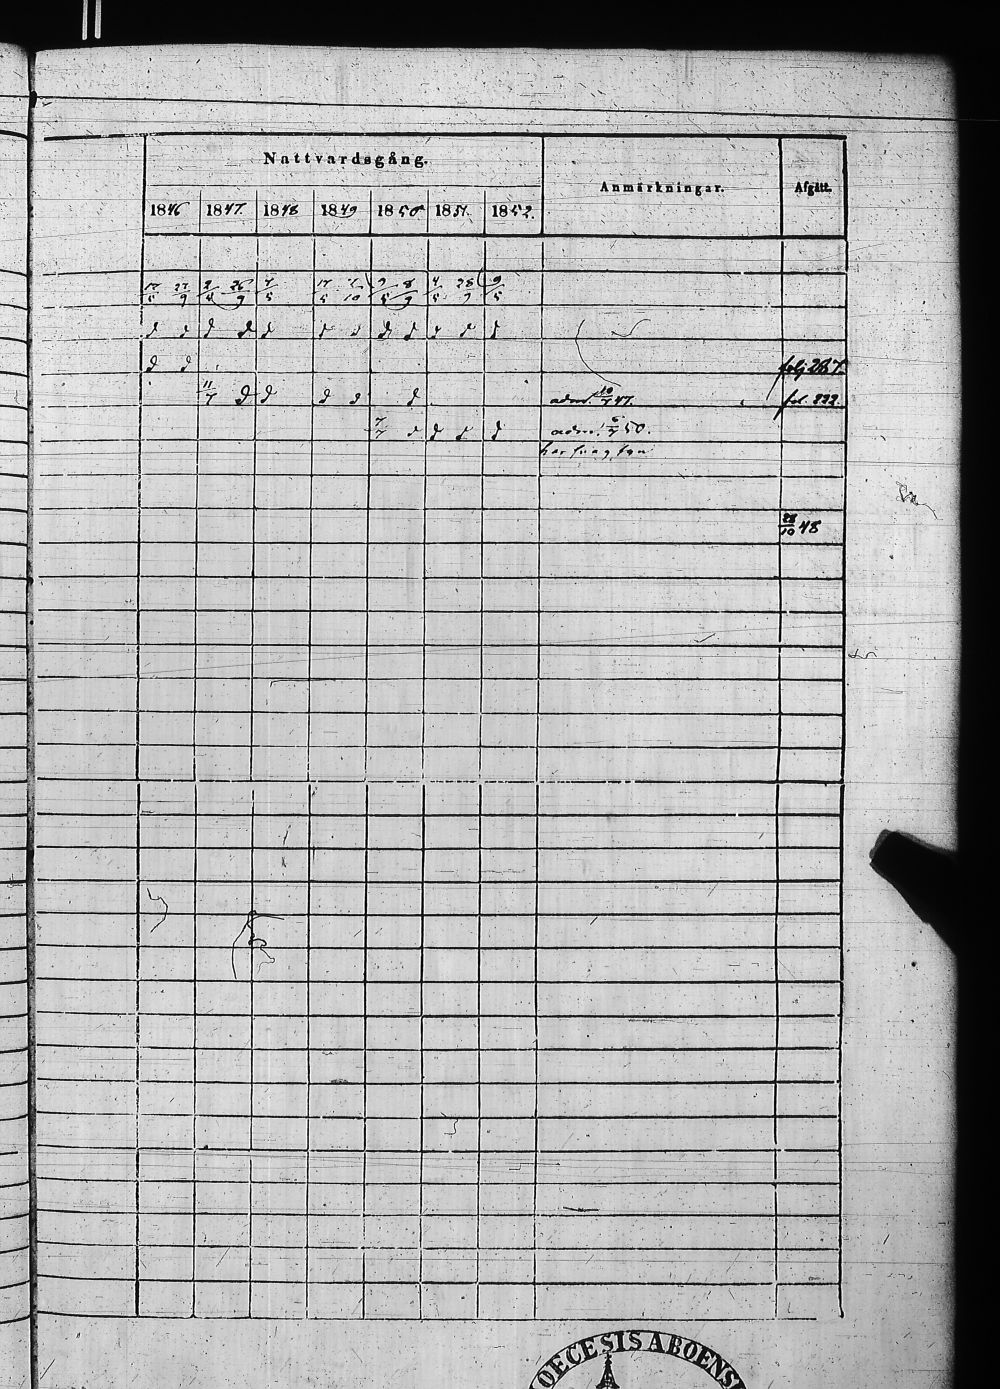 Nattvardsgång. Anmärkningar. Afgått.
1846 1847. 1848 1849 1850 1851. 1852.
17/5 27/9 2/4 26/9 7/5 17/5 7/10 9/5 8/9 4/5 28/9 9/5
d d d d d d d d d d d d
d d folj 287.
11/7 d d d d d adm. 10/7 47. fol. 222.
7/7 d d d d adm. 6/7 50.
28/10 48
OECESIS ABOENS